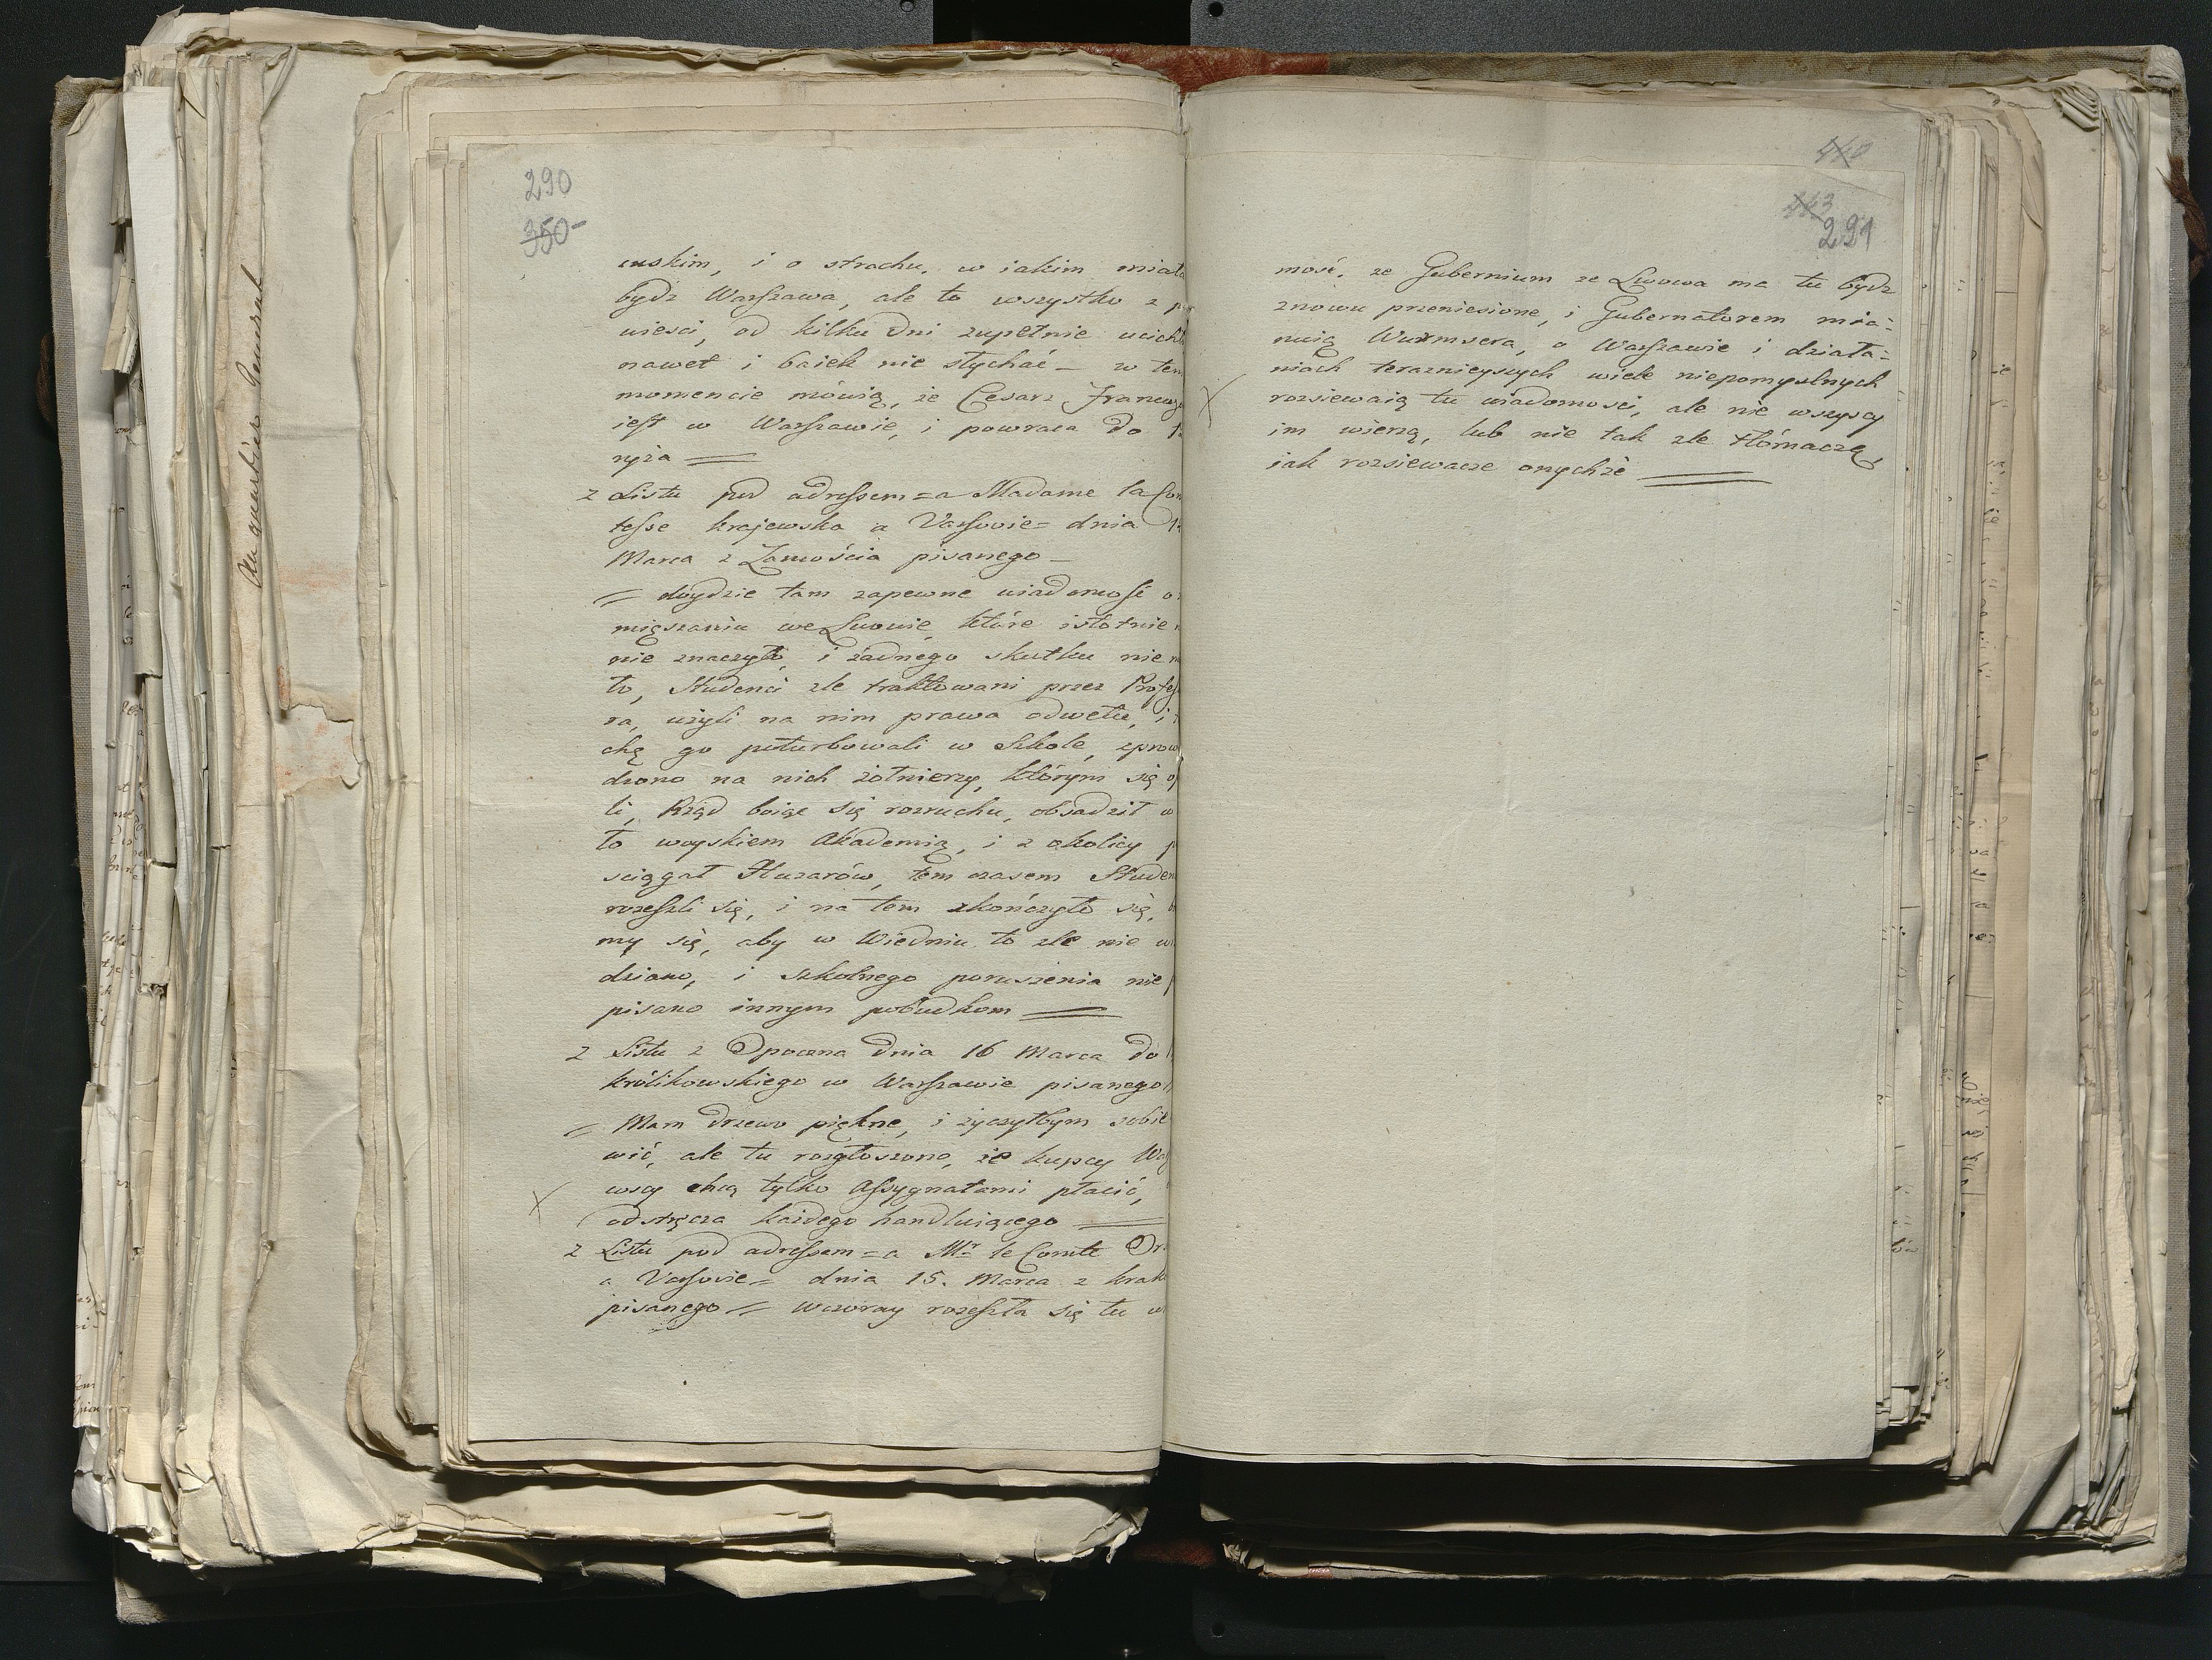 290
350
wskim, i o strachu, w iakim miała
bydz Warszawa, ale to wszystko z
wiesci, od kilku dni zupełnie ucich
nawet i baiek nie słychać – w tem
momencie mówią, że Cesarz Francuz
iest w Warszawie, i powraca do
ryża =
z Listu pod adressem = a Madame la Con
tesse Krajewska a Varsovie = dnia
Marca z Zamościa pisanego –
= doydzie tam zapewne wiadomość o
mięszaniu we Lwowie, które istotnie
nie znaczyło, i żadnego skutku nie
ło, Studenci zle traktowani przez Profes
ra, użyli na nim prawa odwetu, i
chę go poturbowali w Szkole, sprow
dzono na nich żołnierzy, którym się
li, Rząd boiąc się rozruchu, obsadził
to woyskiem Akademią, i z okolicy
sciągał Huzarów, tem czasem Studen
rozeszli się, i na tem skończyło się,
my się, aby w Wiedniu to zle nie
dziano, i szkolnego poruszenia nie
pisano innym pobudkom =
z Listu z Opoczna dnia 16 Marca do
Królikowskiego w Warszawie pisanego
= Mam drzewo piękne, i życzyłbym sobie
wić, ale tu rozgłoszono, że kupcy
wscy chcą tylko Assygnatami płacić,
odstręcza każdego handluiącego =
z Listu pod adressem = a Mr le Comte
a Varsovie = dnia 15. Marca z Krak
pisanego = wczoray rozeszła się tu
Au quartier General
440
443
291
mość, ze Gubernium ze Lwowa ma tu bydz
znowu przeniesione, i Gubernatorem mia=
nuią Wurmsera, o Warszawie i działa=
niach terazniejszych wiele niepomyslnych
rozsiewaią tu wiadomosci, ale nie wszyscy
im wierzą, lub nie tak zle tłómaczą,
iak rozsiewacze onychże =